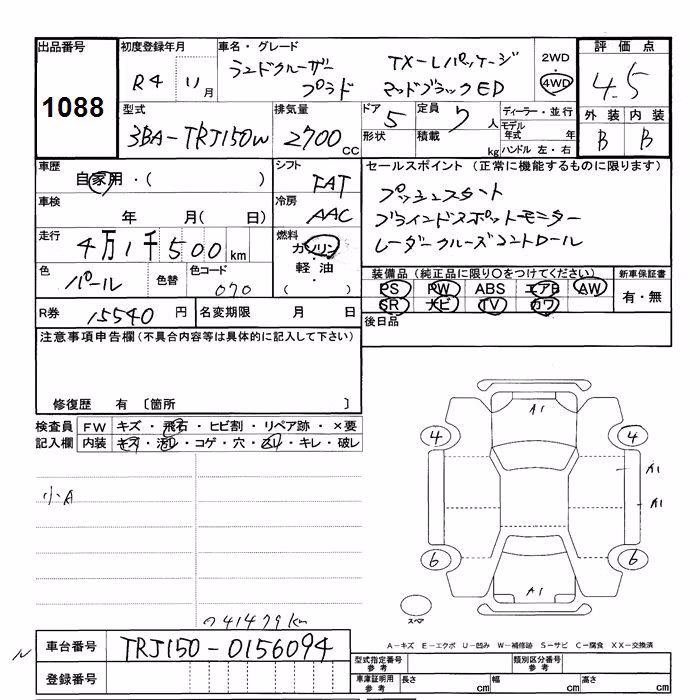 出品番号
1088
初度登録年月
R4 年 11月
車名・グレード
ランドクルーザー プラド
TX-Lパッケージ
マッドブラックED
2WD
4WD
評価点
4.5
外装 内装
B B
型式
3BA-TRJ150W
排気量
2700 CC
ドア 5
形状
定員 7 人
積載 kg
ディーラー・並行
モデル年式 年
ハンドル 左・右
車歴
自家用・( )
シフト
FAT
車検
年 月( 日)
冷房
AAC
走行
4万1千500km
燃料
ガソリン
・
軽油
( )
色
パール
色替
色コード
070
セールスポイント (正常に機能するものに限ります)
プッシュスタート
ブラインドスポットモニター
レーダークルーズコントロール
装備品(純正品に限り○をつけてください)
新車保証書
PS PW ABS エアB AW
SR ナビ TV カワ
有・無
R券 15540 円
名変期限 月 日
後日品
注意事項申告欄(不具合内容等は具体的に記入して下さい)
修復歴 有 〔箇所 〕
検査員記入欄
FW キズ・飛石・ヒビ割・リペア跡・×要
内装 キズ・汚れ・コゲ・穴・スレ・キレ・破レ
小A
A1
4 4
A1
A1
6 6
A1
スペア
41479km
A-キズ E-エクボ U-凹み W-補修跡 S-サビ C-腐食 XX-交換済
車台番号 TRJ150-0156094
登録番号
型式指定番号 参考
類別区分番号 参考
車庫証明用 参考
長さ cm
幅 cm
高さ cm